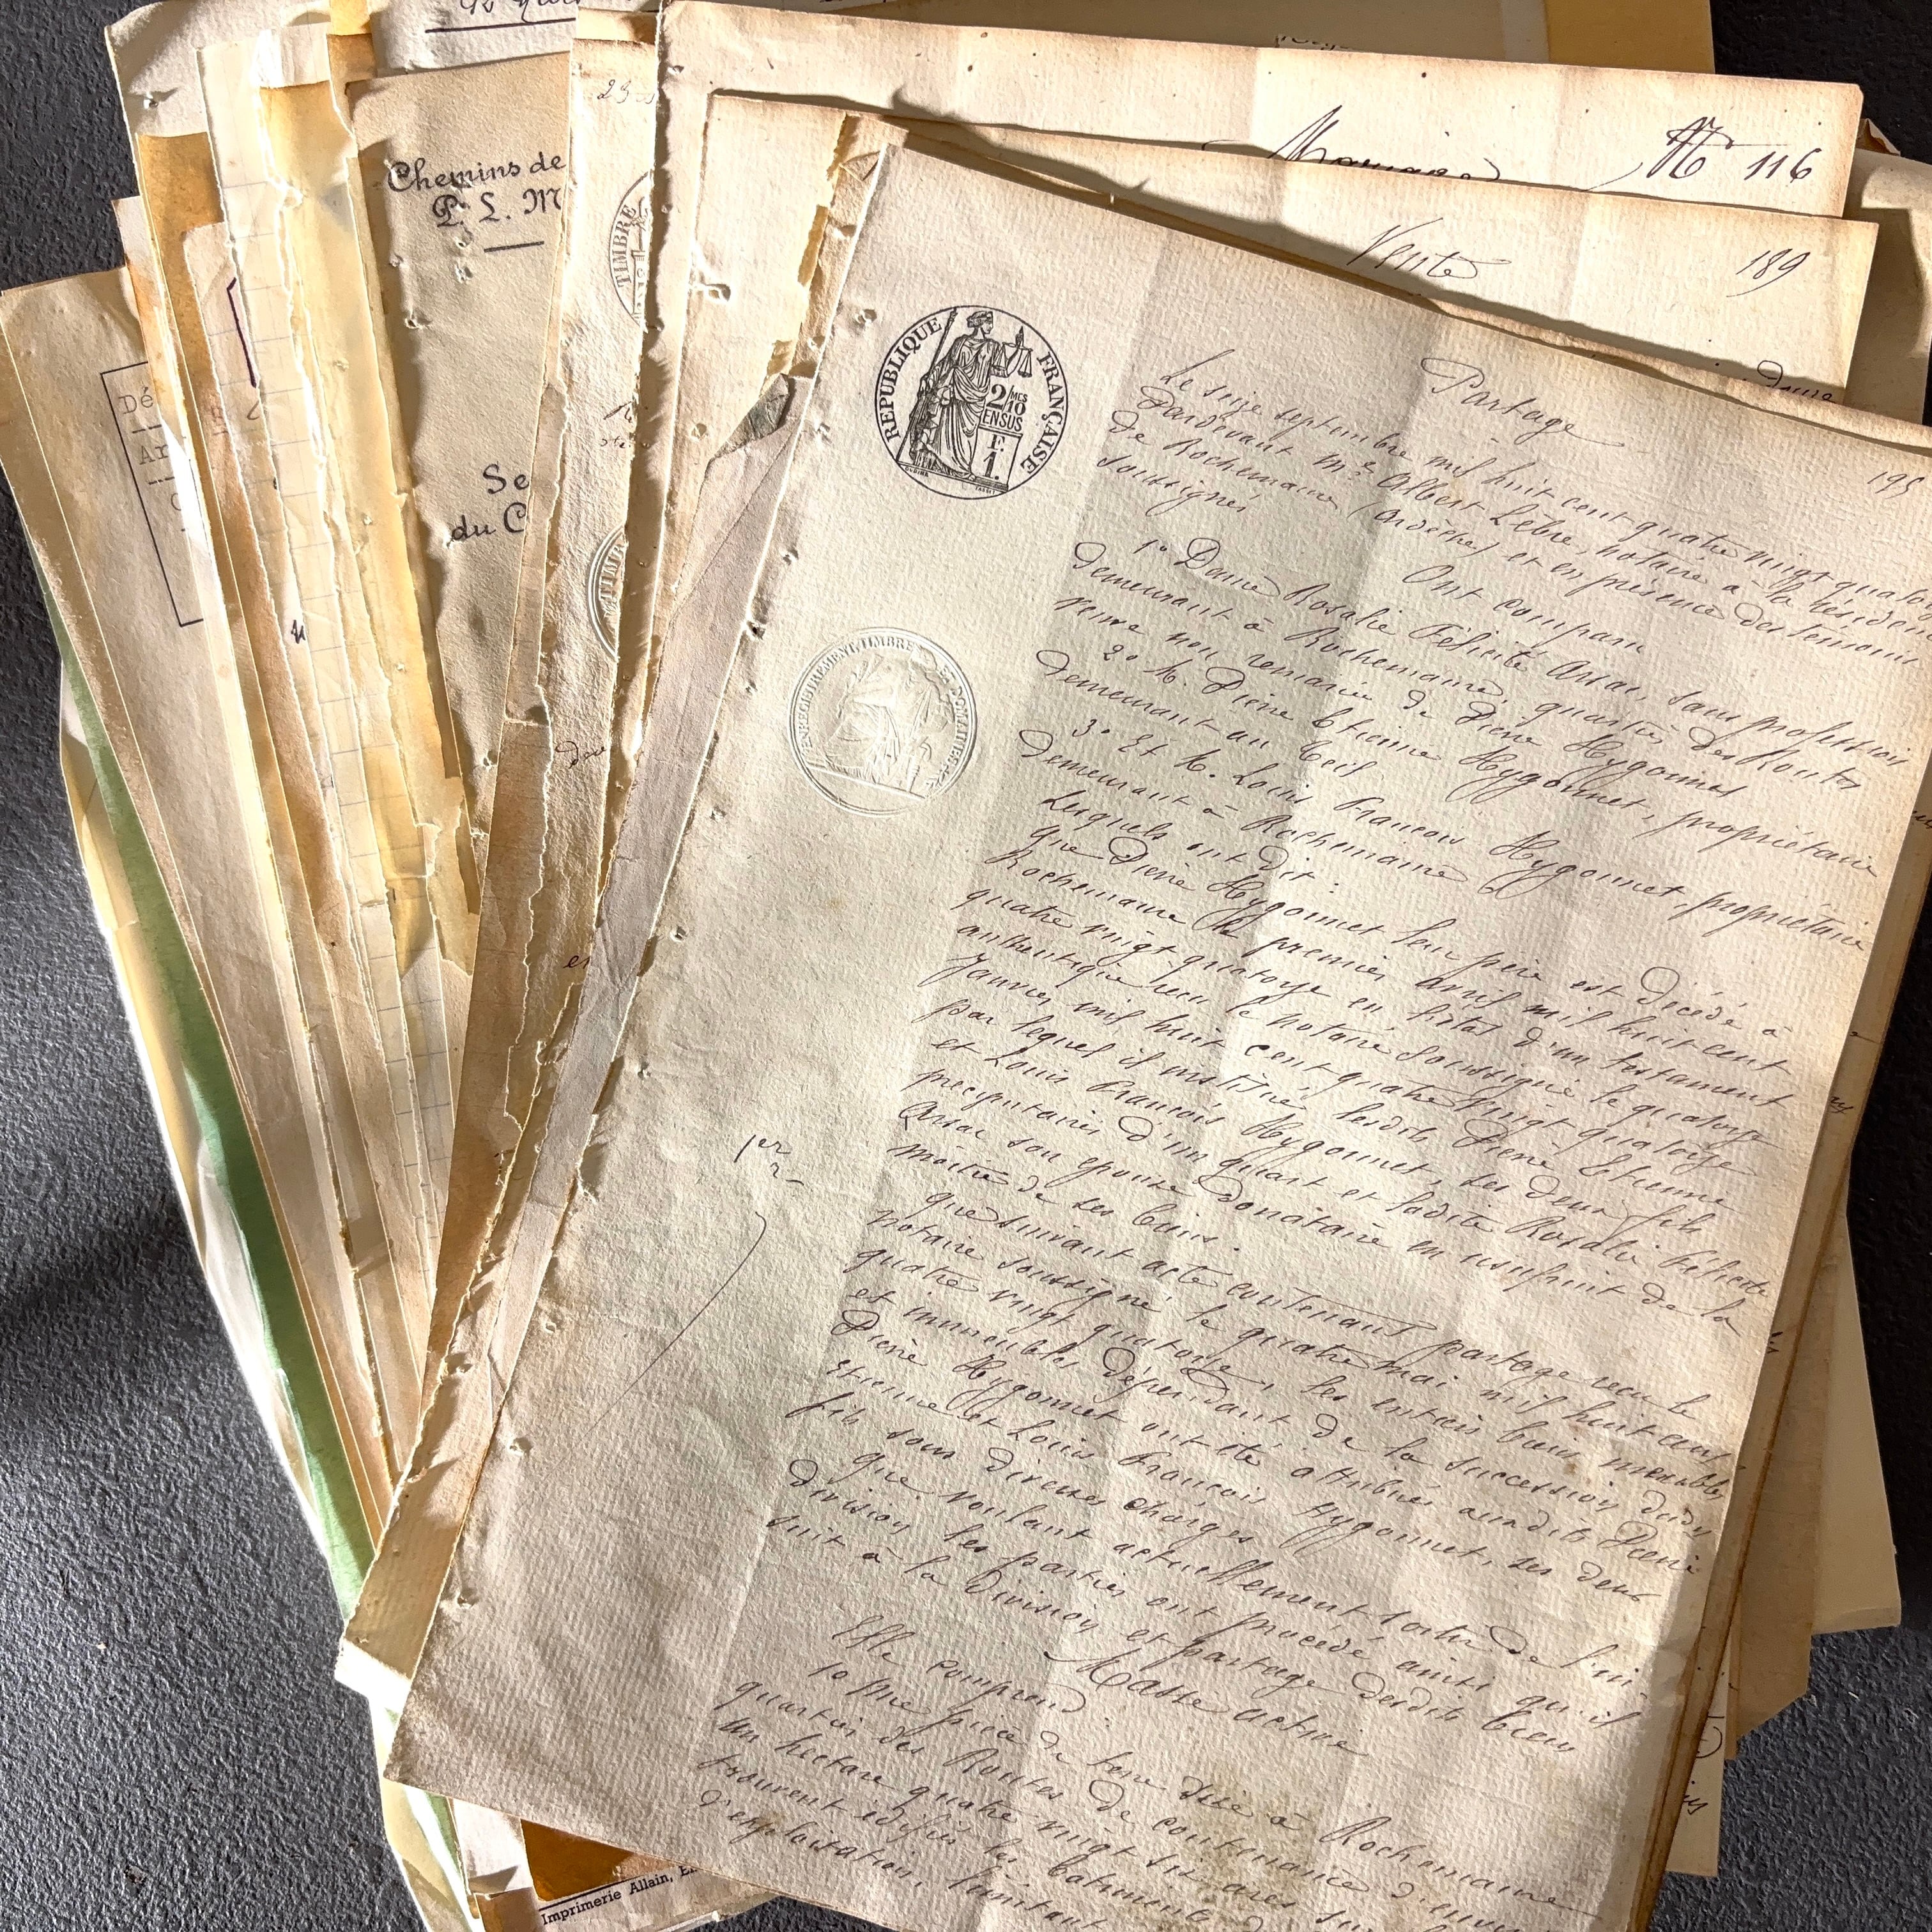 Chemins de
P. L. M
Se
du C
Dé
Ar
TIMBRE
Mariage N° 116
Vente 189
195
REPUBLIQUE FRANÇAISE
2/10 MES
EN SUS
F.
1.
ENREGISTREMENT TIMBRE ET DOMAINES
Partage
Le seize septembre mil huit cent quatre vingt quato
Pardevant Me Albert Lèbre, notaire à la résidence
de Rochemaure (Ardèche) et en présence des témoins
soussignés
Ont comparu
1° Dame Rosalie Félicité Arsac, sans profession
demeurant à Rochemaure, quartier des Routes
veuve non remariée de Pierre Hygonnet
2° M. Pierre Etienne Hygonnet, propriétaire
demeurant au Teil
3° Et M. Louis François Hygonnet, propriétaire
demeurant à Rochemaure
Lesquels ont dit :
que Pierre Hygonnet leur père est décédé à
Rochemaure le premier avril mil huit cent
quatre vingt quatorze en l'état d'un testament
authentique reçu le notaire soussigné le quatorze
Janvier mil huit cent quatre vingt quatorze
par lequel il institue lesdits Pierre Etienne
et Louis François Hygonnet, ses deux fils
préciputaires d'un quart et ladite Rosalie Félicité
Arsac son épouse donataire en usufruit de la
moitié de ses biens.
que suivant acte contenant partage reçu le
notaire soussigné le quatre mai mil huit cent
quatre vingt quatorze, les entiers biens meubles
et immeubles dépendant de la succession dudit
Pierre Hygonnet ont été attribués auxdits Pierre
Etienne et Louis François Hygonnet, ses deux
fils sous diverses charges
que voulant actuellement sortir de l'in-
division les parties ont procédé ainsi qu'il
suit à la division et partage desdits biens
Masse active
Elle comprend :
1° Une pièce de terre sise à Rochemaure
quartier des Routes de contenance d'environ
un hectare quatre vingt six ares sur
trouvent édifiés les bâtiments d
d'exploitation,
1er
2
Imprimerie Allain,